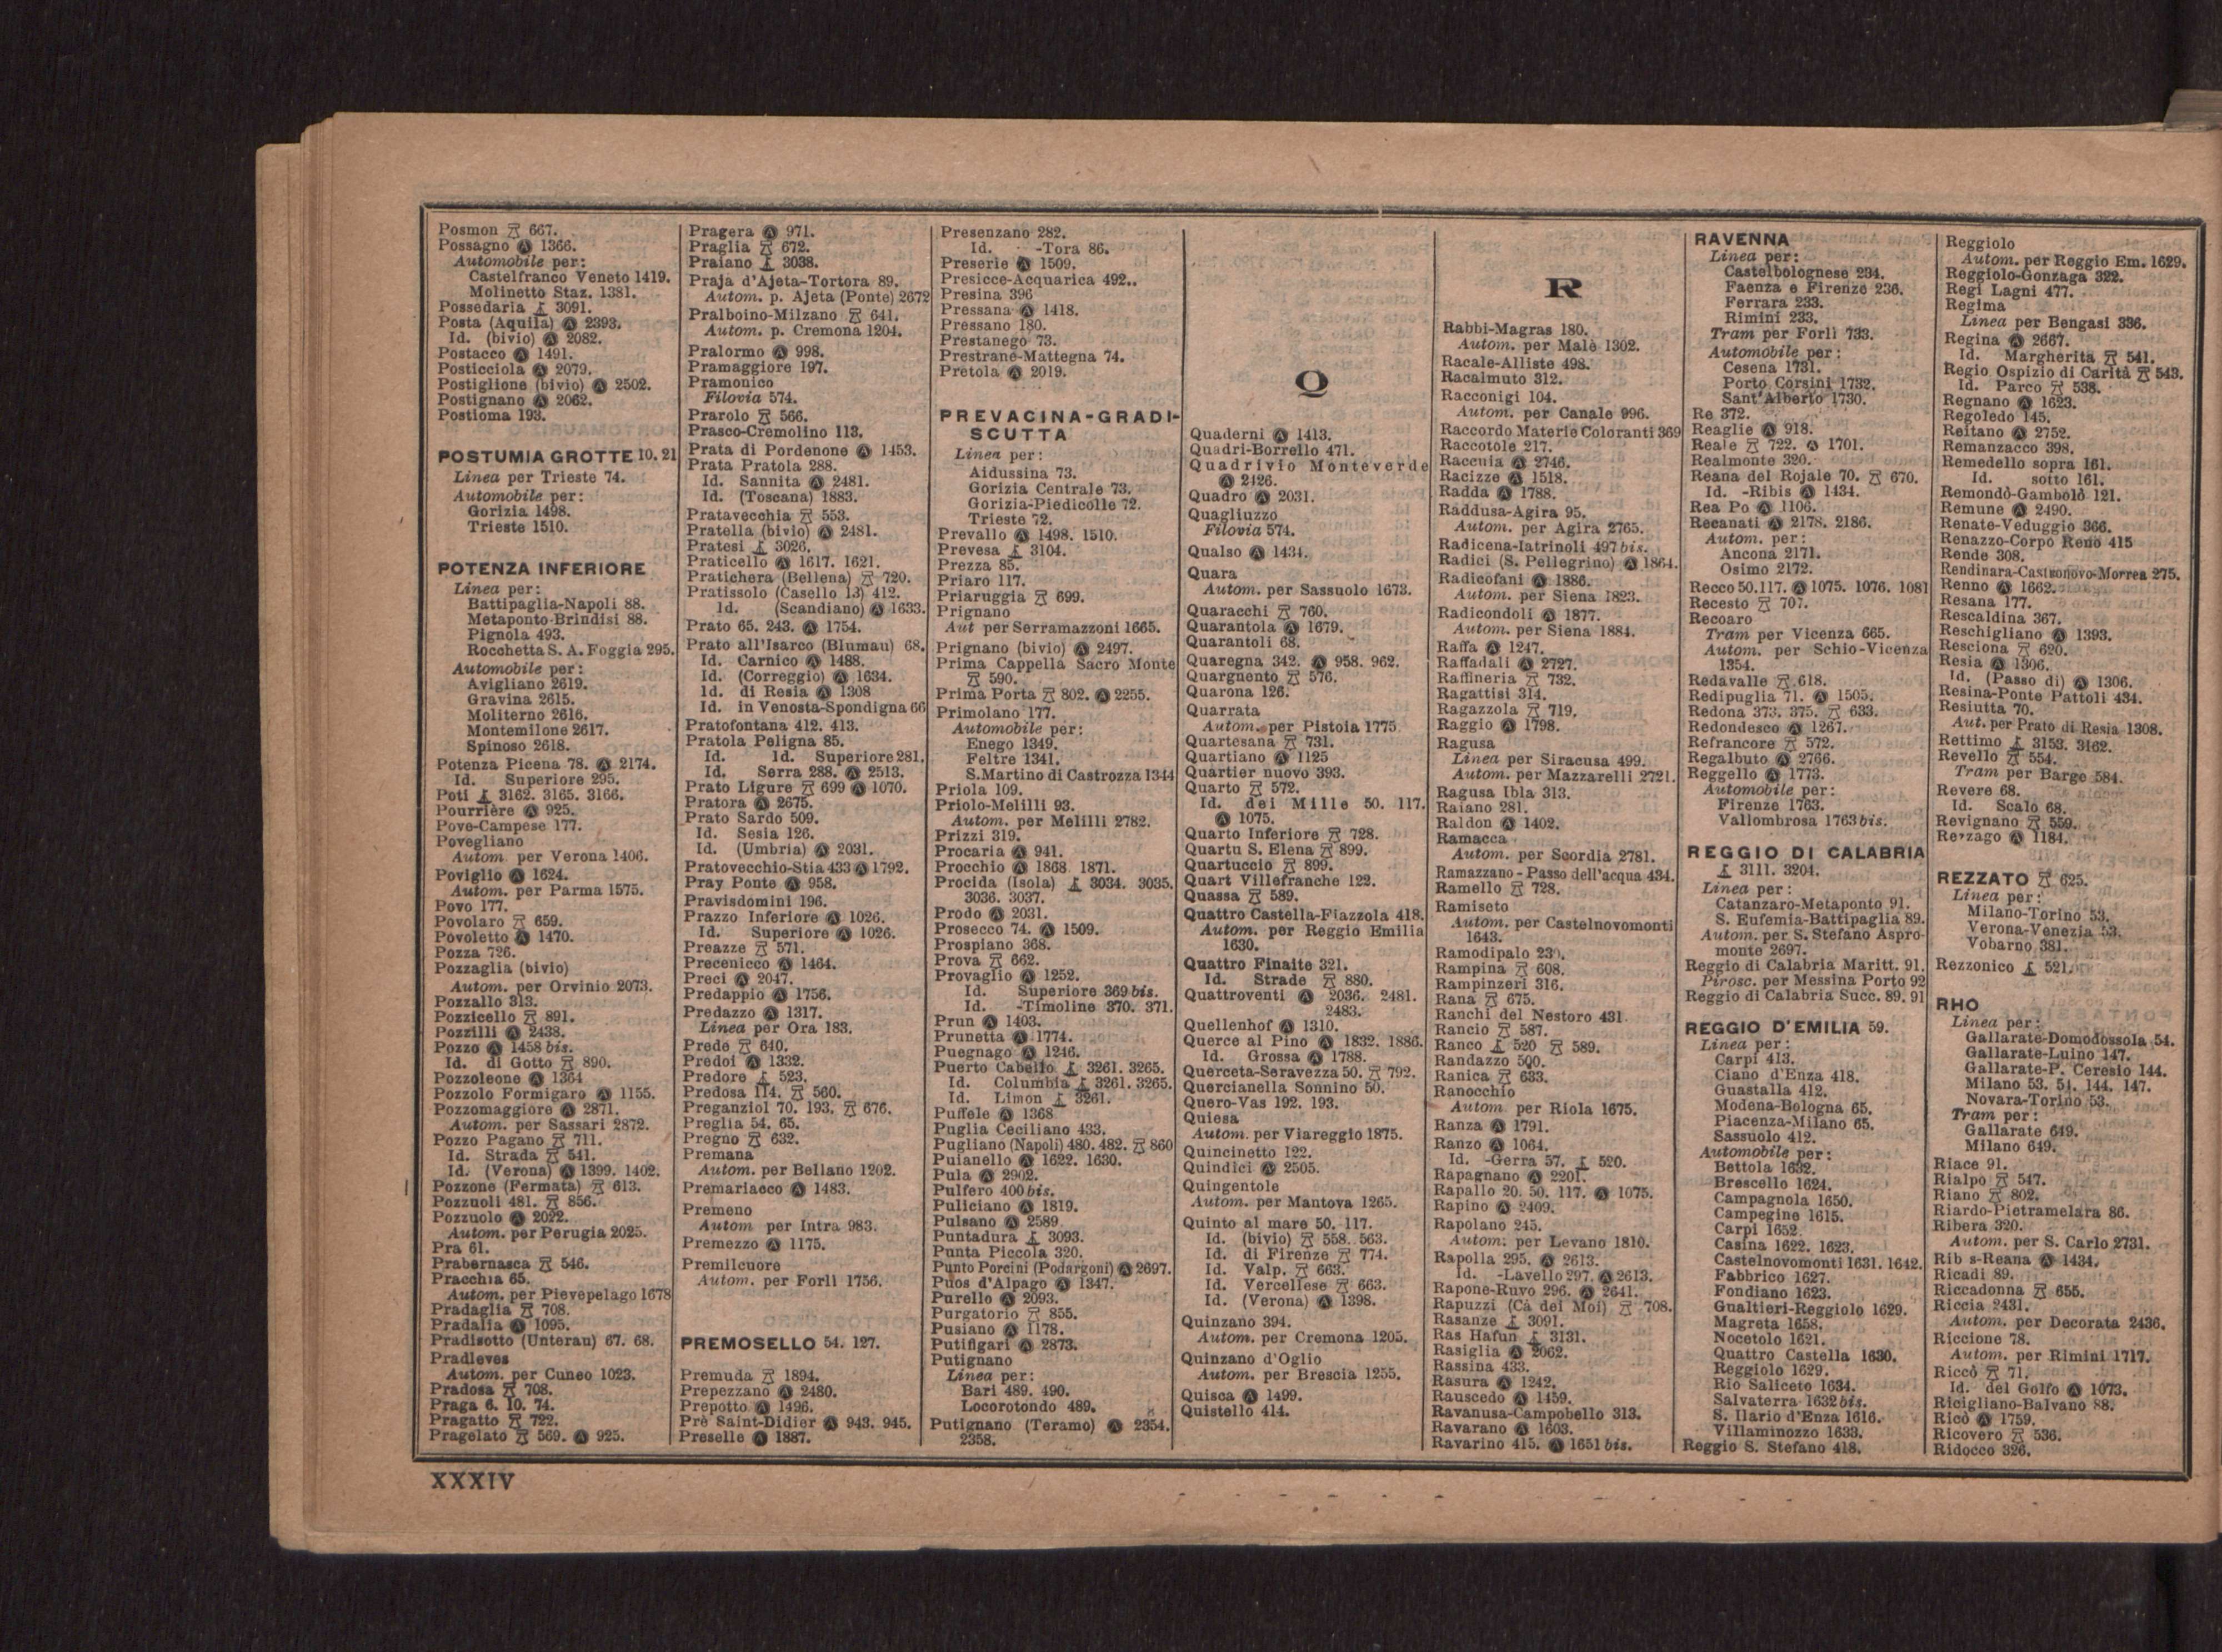 Posmon 667.
Possagno Ⓐ 1366.
Automobile per:
Castelfranco Veneto 1419.
Molinetto Staz. 1381.
Possedaria 3091.
Posta (Aquila) Ⓐ 2393.
Id. (bivio) Ⓐ 2082.
Postacco Ⓐ 1491.
Posticciola Ⓐ 2079.
Postiglione (bivio) Ⓐ 2502.
Postignano Ⓐ 2062.
Postioma 193.
POSTUMIA GROTTE 10. 21
Linea per Trieste 74.
Automobile per:
Gorizia 1498.
Trieste 1510.
POTENZA INFERIORE
Linea per:
Battipaglia-Napoli 88.
Metaponto-Brindisi 88.
Pignola 493.
Rocchetta S. A. Foggia 295.
Automobile per:
Avigliano 2612.
Gravina 2615.
Moliterno 2616.
Montemilone 2617.
Spinoso 2618.
Potenza Picena 78. Ⓐ 2174.
Id. Superiore 295.
Poti 3162. 3165. 3166.
Pourrière Ⓐ 925.
Pove-Campese 177.
Povegliano
Autom. per Verona 1406.
Poviglio Ⓐ 1624.
Autom. per Parma 1575.
Povo 177.
Povolaro 659.
Povoletto Ⓐ 1470.
Pozza 726.
Pozzaglia (bivio)
Autom. per Orvinio 2073.
Pozzallo 313.
Pozzicello 891.
Pozzilli Ⓐ 2438.
Pozzo Ⓐ 1458 bis.
Id. di Gotto 890.
Pozzoleone Ⓐ 1364
Pozzolo Formigaro Ⓐ 1155.
Pozzomaggiore Ⓐ 2871.
Autom. per Sassari 2872.
Pozzo Pagano 711.
Id. Strada 541.
Id. (Verona) Ⓐ 1399. 1402.
Pozzone (Fermata) 613.
Pozzuoli 481. 856.
Pozzuolo Ⓐ 2022.
Autom. per Perugia 2025.
Pra 61.
Prabernasca 546.
Pracchia 65.
Autom. per Pievepelago 1678
Pradaglia 708.
Pradalia Ⓐ 1095.
Pradisotto (Unterau) 67. 68.
Pradleves
Autom. per Cuneo 1023.
Pradosa 708.
Praga 6. 10. 74.
Pragatto 722.
Pragelato 569. Ⓐ 925.
Pragera Ⓐ 971.
Praglia 672.
Praiano 3038.
Praja d'Ajeta-Tortora 89.
Autom. p. Ajeta (Ponte) 2672
Pralboino-Milzano 641.
Autom. p. Cremona 1204.
Pralormo Ⓐ 998.
Pramaggiore 197.
Pramonico
Filovia 574.
Prarolo 566.
Prasco-Cremolino 113.
Prata di Pordenone Ⓐ 1453.
Prata Pratola 288.
Id. Sannita Ⓐ 2481.
Id. (Toscana) 1883.
Pratavecchia 553.
Pratella (bivio) Ⓐ 2481.
Pratesi 3026.
Praticello Ⓐ 1617. 1621.
Pratichera (Bellena) 720.
Pratissolo (Casello 13) 412.
Id. (Scandiano) Ⓐ 1633.
Prato 65. 243. Ⓐ 1754.
Prato all'Isarco (Blumau) 68.
Id. Carnico Ⓐ 1488.
Id. (Correggio) Ⓐ 1634.
Id. di Resia Ⓐ 1308
Id. in Venosta-Spondigna 66
Pratofontana 412. 413.
Pratola Peligna 85.
Id. Id. Superiore 281.
Id. Serra 288. Ⓐ 2513.
Prato Ligure 699 Ⓐ 1070.
Pratora Ⓐ 2675.
Prato Sardo 509.
Id. Sesia 126.
Id. (Umbria) Ⓐ 2031.
Pratovecchio-Stia 433 Ⓐ 1792.
Pray Ponte Ⓐ 958.
Pravisdomini 196.
Prazzo Inferiore Ⓐ 1026.
Id. Superiore Ⓐ 1026.
Preazze 571.
Precenicco Ⓐ 1464.
Preci Ⓐ 2047.
Predappio Ⓐ 1756.
Predazzo Ⓐ 1317.
Linea per Ora 183.
Prede 640.
Predoi Ⓐ 1332.
Predore 523.
Predosa 114. 560.
Preganziol 70. 193. 676.
Preglia 54. 65.
Pregno 632.
Premana
Autom. per Bellano 1202.
Premariacco Ⓐ 1483.
Premeno
Autom per Intra 983.
Premezzo Ⓐ 1175.
Premilcuore
Autom. per Forlì 1756.
PREMOSELLO 54. 127.
Premuda 1894.
Prepezzano Ⓐ 2480.
Prepotto Ⓐ 1496.
Prè Saint-Didier Ⓐ 943. 945.
Preselle Ⓐ 1887.
Presenzano 282.
Id. -Tora 86.
Preserie Ⓐ 1509.
Presicce-Acquarica 492..
Presina 396
Pressana Ⓐ 1418.
Pressano 180.
Prestanego 73.
Prestrane-Mattegna 74.
Pretola Ⓐ 2019.
PREVACINA-GRADI-
SCUTTA
Linea per:
Aidussina 73.
Gorizia Centrale 73.
Gorizia-Piedicolle 72.
Trieste 72.
Prevallo Ⓐ 1498. 1510.
Prevesa 3104.
Prezza 85.
Priaro 117.
Priaruggia 699.
Prignano
Aut per Serramazzoni 1665.
Prignano (bivio) Ⓐ 2497.
Prima Cappella Sacro Monte
590.
Prima Porta 802. Ⓐ 2255.
Primolano 177.
Automobile per:
Enego 1349.
Feltre 1341.
S. Martino di Castrozza 1344
Priola 109.
Priolo-Melilli 93.
Autom. per Melilli 2782.
Prizzi 319.
Procaria Ⓐ 941.
Procchio Ⓐ 1868 1871.
Procida (Isola) 3034. 3035.
3036. 3037.
Prodo Ⓐ 2031.
Prosecco 74. Ⓐ 1509.
Prospiano 368.
Prova 662.
Provaglio Ⓐ 1252.
Id. Superiore 369 bis.
Id. -Timoline 370. 371.
Prun Ⓐ 1403.
Prunetta Ⓐ 1774.
Puegnago Ⓐ 1246.
Puerto Cabello 3261. 3265.
Id. Columbia 3261. 3265.
Id. Limon 3261.
Puffele Ⓐ 1368
Puglia Ceciliano 433.
Pugliano (Napoli) 480. 482. 860
Puianello Ⓐ 1622. 1630.
Pula Ⓐ 2902.
Pulfero 400 bis.
Puliciano Ⓐ 1819.
Pulsano Ⓐ 2589
Puntadura 3093.
Punta Piccola 320.
Punto Porcini (Podargoni) Ⓐ 2697.
Puos d'Alpago Ⓐ 1347.
Purello Ⓐ 2093.
Purgatorio 855.
Pusiano Ⓐ 1178.
Putifigari Ⓐ 2873.
Putignano
Linea per:
Bari 489. 490.
Locorotondo 489.
Putignano (Teramo) Ⓐ 2354.
2358.
Q
Quaderni Ⓐ 1413.
Quadri-Borrello 471.
Quadrivio Monteverde
Ⓐ 2426.
Quadro Ⓐ 2031.
Quagliuzzo
Filovia 574.
Qualso Ⓐ 1434.
Quara
Autom. per Sassuolo 1673.
Quaracchi 760.
Quarantola Ⓐ 1679.
Quarantoli 68.
Quaregna 342. Ⓐ 958. 962.
Quargnento 576.
Quarona 126.
Quarrata
Autom. per Pistoia 1775
Quartesana 731.
Quartiano Ⓐ 1125
Quartier nuovo 393.
Quarto 572.
Id. dei Mille 50. 117.
Ⓐ 1075.
Quarto Inferiore 728.
Quartu S. Elena 899.
Quartuccio 899.
Quart Villefranche 122.
Quassa 589.
Quattro Castella-Piazzola 418.
Autom. per Reggio Emilia
1630.
Quattro Finaite 321.
Id. Strade 880.
Quattroventi Ⓐ 2036. 2481.
2483.
Quellenhof Ⓐ 1310.
Querce al Pino Ⓐ 1832. 1886.
Id. Grossa Ⓐ 1788.
Querceta-Seravezza 50. 792.
Quercianella Sonnino 50.
Quero-Vas 192. 193.
Quiesa
Autom. per Viareggio 1875.
Quincinetto 122.
Quindici Ⓐ 2505.
Quingentole
Autom. per Mantova 1265.
Quinto al mare 50. 117.
Id. (bivio) 558. 563.
Id. di Firenze 774.
Id. Valp. 663.
Id. Vercellese 663.
Id. (Verona) Ⓐ 1398.
Quinzano 394.
Autom. per Cremona 1205.
Quinzano d'Oglio
Autom. per Brescia 1255.
Quisca Ⓐ 1499.
Quistello 414.
R
Rabbi-Magras 180.
Autom. per Malè 1302.
Racale-Alliste 498.
Racalmuto 312.
Racconigi 104.
Autom. per Canale 996.
Raccordo Materie Coloranti 369
Raccotole 217.
Raccuia Ⓐ 2746.
Racizze Ⓐ 1518.
Radda Ⓐ 1788.
Raddusa-Agira 95.
Autom. per Agira 2765.
Radicena-Iatrinoli 497 bis.
Radici (S. Pellegrino) Ⓐ 1864.
Radicofani Ⓐ 1886.
Autom. per Siena 1823.
Radicondoli Ⓐ 1877.
Autom. per Siena 1884.
Raffa Ⓐ 1247.
Raffadali Ⓐ 2727.
Raffineria 732.
Ragattisi 314.
Ragazzola 719.
Raggio Ⓐ 1798.
Ragusa
Linea per Siracusa 499.
Autom. per Mazzarelli 2721.
Ragusa Ibla 313.
Raiano 281.
Raldon Ⓐ 1402.
Ramacca
Autom. per Scordia 2781.
Ramazzano - Passo dell'acqua 434.
Ramello 728.
Ramiseto
Autom. per Castelnovomonti
1643.
Ramodipalo 230.
Rampina 608.
Rampinzeri 316.
Rana 675.
Ranchi del Nestoro 431
Rancio 587.
Ranco 520 589.
Randazzo 500.
Ranica 633.
Ranocchio
Autom per Riola 1675.
Ranza Ⓐ 1791.
Ranzo Ⓐ 1064.
Id. -Gerra 57. 520.
Rapagnano Ⓐ 2201.
Rapallo 20. 50. 117. Ⓐ 1075.
Rapino Ⓐ 2409.
Rapolano 245.
Autom. per Levano 1810.
Rapolla 295. Ⓐ 2613.
Id. -Lavello 297. Ⓐ 2613.
Rapone-Ruvo 296. Ⓐ 2641.
Rapuzzi (Cà dei Moi) 708.
Rasanze 3091.
Ras Hafun 3131.
Rasiglia Ⓐ 2062.
Rassina 433.
Rasura Ⓐ 1242.
Rauscedo Ⓐ 1459.
Ravanusa-Campobello 313.
Ravarano Ⓐ 1603.
Ravarino 415. Ⓐ 1651 bis.
RAVENNA
Linea per:
Castelbolognese 234.
Faenza e Firenze 236.
Ferrara 233.
Rimini 233.
Tram per Forlì 733.
Automobile per:
Cesena 1731.
Porto Corsini 1732.
Sant'Alberto 1730.
Re 372.
Reaglie Ⓐ 918.
Reale 722. Ⓐ 1701.
Realmonte 320.
Reana del Rojale 70. 670.
Id. -Ribis Ⓐ 1434.
Rea Po Ⓐ 1106.
Recanati Ⓐ 2178. 2186.
Autom. per:
Ancona 2171.
Osimo 2172.
Recco 50. 117. Ⓐ 1075. 1076. 1081
Recesto 707.
Recoaro
Tram per Vicenza 665.
Autom. per Schio-Vicenza
1354.
Redavalle 618.
Redipuglia 71. Ⓐ 1505.
Redona 373. 375. 633.
Redondesco Ⓐ 1267.
Refrancore 572.
Regalbuto Ⓐ 2766.
Reggello Ⓐ 1773.
Automobile per:
Firenze 1763.
Vallombrosa 1763 bis.
REGGIO DI CALABRIA
3111. 3204.
Linea per:
Catanzaro-Metaponto 91.
S. Eufemia-Battipaglia 89.
Autom. per S. Stefano Aspro-
monte 2697.
Reggio di Calabria Maritt. 91.
Pirosc. per Messina Porto 92
Reggio di Calabria Succ. 89. 91
REGGIO D'EMILIA 59.
Linea per:
Carpi 413.
Ciano d'Enza 418.
Guastalla 412.
Modena-Bologna 65.
Piacenza-Milano 65.
Sassuolo 412.
Automobile per:
Bettola 1632.
Brescello 1624.
Campagnola 1650.
Campegine 1615.
Carpi 1652.
Casina 1622. 1623.
Castelnovomonti 1631. 1642.
Fabbrico 1627.
Fondiano 1623.
Gualtieri-Reggiolo 1629.
Magreta 1658.
Nocetolo 1621.
Quattro Castella 1630.
Reggiolo 1629.
Rio Saliceto 1634.
Salvaterra 1632 bis.
S. Ilario d'Enza 1616.
Villaminozzo 1633.
Reggio S. Stefano 418.
Reggiolo
Autom. per Reggio Em. 1629.
Reggiolo-Gonzaga 322.
Regi Lagni 477.
Regima
Linea per Bengasi 336.
Regina Ⓐ 2667.
Id. Margherita 541.
Regio Ospizio di Carità 543.
Id. Parco 538.
Regnano Ⓐ 1623.
Regoledo 145.
Reitano Ⓐ 2752.
Remanzacco 398.
Remedello sopra 161.
Id. sotto 161.
Remondò-Gambolò 121.
Remune Ⓐ 2490.
Renate-Veduggio 366.
Renazzo-Corpo Reno 415
Rende 308.
Rendinara-Castronovo-Morrea 275.
Renno Ⓐ 1662.
Resana 177.
Rescaldina 367.
Reschigliano Ⓐ 1393.
Resciona 620.
Resia Ⓐ 1306.
Id. (Passo di) Ⓐ 1306.
Resina-Ponte Pattoli 434.
Resiutta 70.
Aut. per Prato di Resia 1308.
Rettimo 3153. 3162.
Revello 554.
Tram per Barge 584.
Revere 68.
Id. Scalo 68.
Revignano 559.
Revzago Ⓐ 1184.
REZZATO 625.
Linea per:
Milano-Torino 53.
Verona-Venezia 53.
Vobarno 381.
Rezzonico 521.
RHO
Linea per:
Gallarate-Domodossola 54.
Gallarate-Luino 147.
Gallarate-P. Ceresio 144.
Milano 53. 54. 144. 147.
Novara-Torino 53.
Tram per:
Gallarate 649.
Milano 649.
Riace 91.
Rialpo 547.
Riano 802.
Riardo-Pietramelara 86.
Ribera 320.
Autom. per S. Carlo 2731.
Rib s-Reana Ⓐ 1434.
Ricadi 89.
Riccadonna 655.
Riccia 2431.
Autom. per Decorata 2436.
Riccione 78.
Autom. per Rimini 1717.
Riccò 71.
Id. del Golfo Ⓐ 1073.
Ricigliano-Balvano 88.
Ricò Ⓐ 1759.
Ricovero 536.
Ridocco 326.
XXXIV